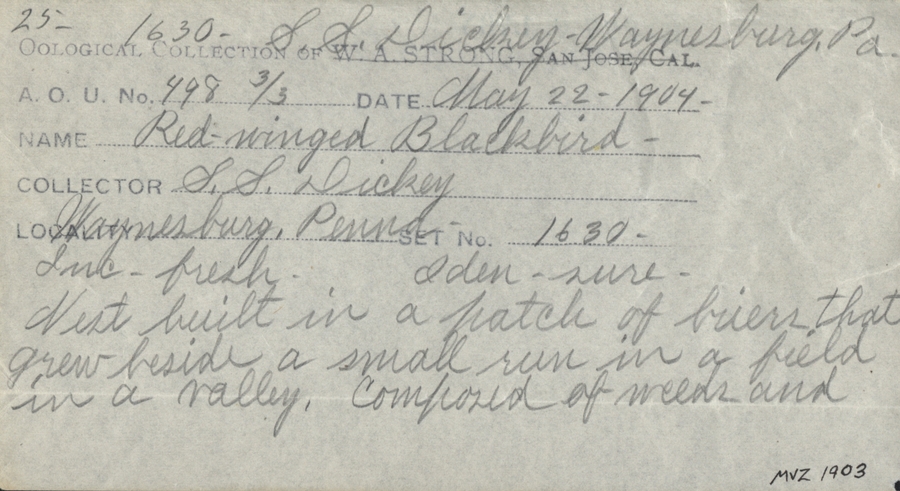 25- 1630- S. S. Dickey-Waynesburg, Pa.
OOLOGICAL COLLECTION OF W. A. STRONG, SAN JOSE, CAL.
A. O. U. No. 498 3/3 DATE May 22-1904-
NAME Red-winged Blackbird-
COLLECTOR S. S. Dickey
LOCALITY Waynesburg, Penna- SET No. 1630-
Inc- fresh- Iden-sure-
Nest built in a patch of briers that
grew beside a small run in a field
in a valley. Composed of weeds and
MVZ 1903